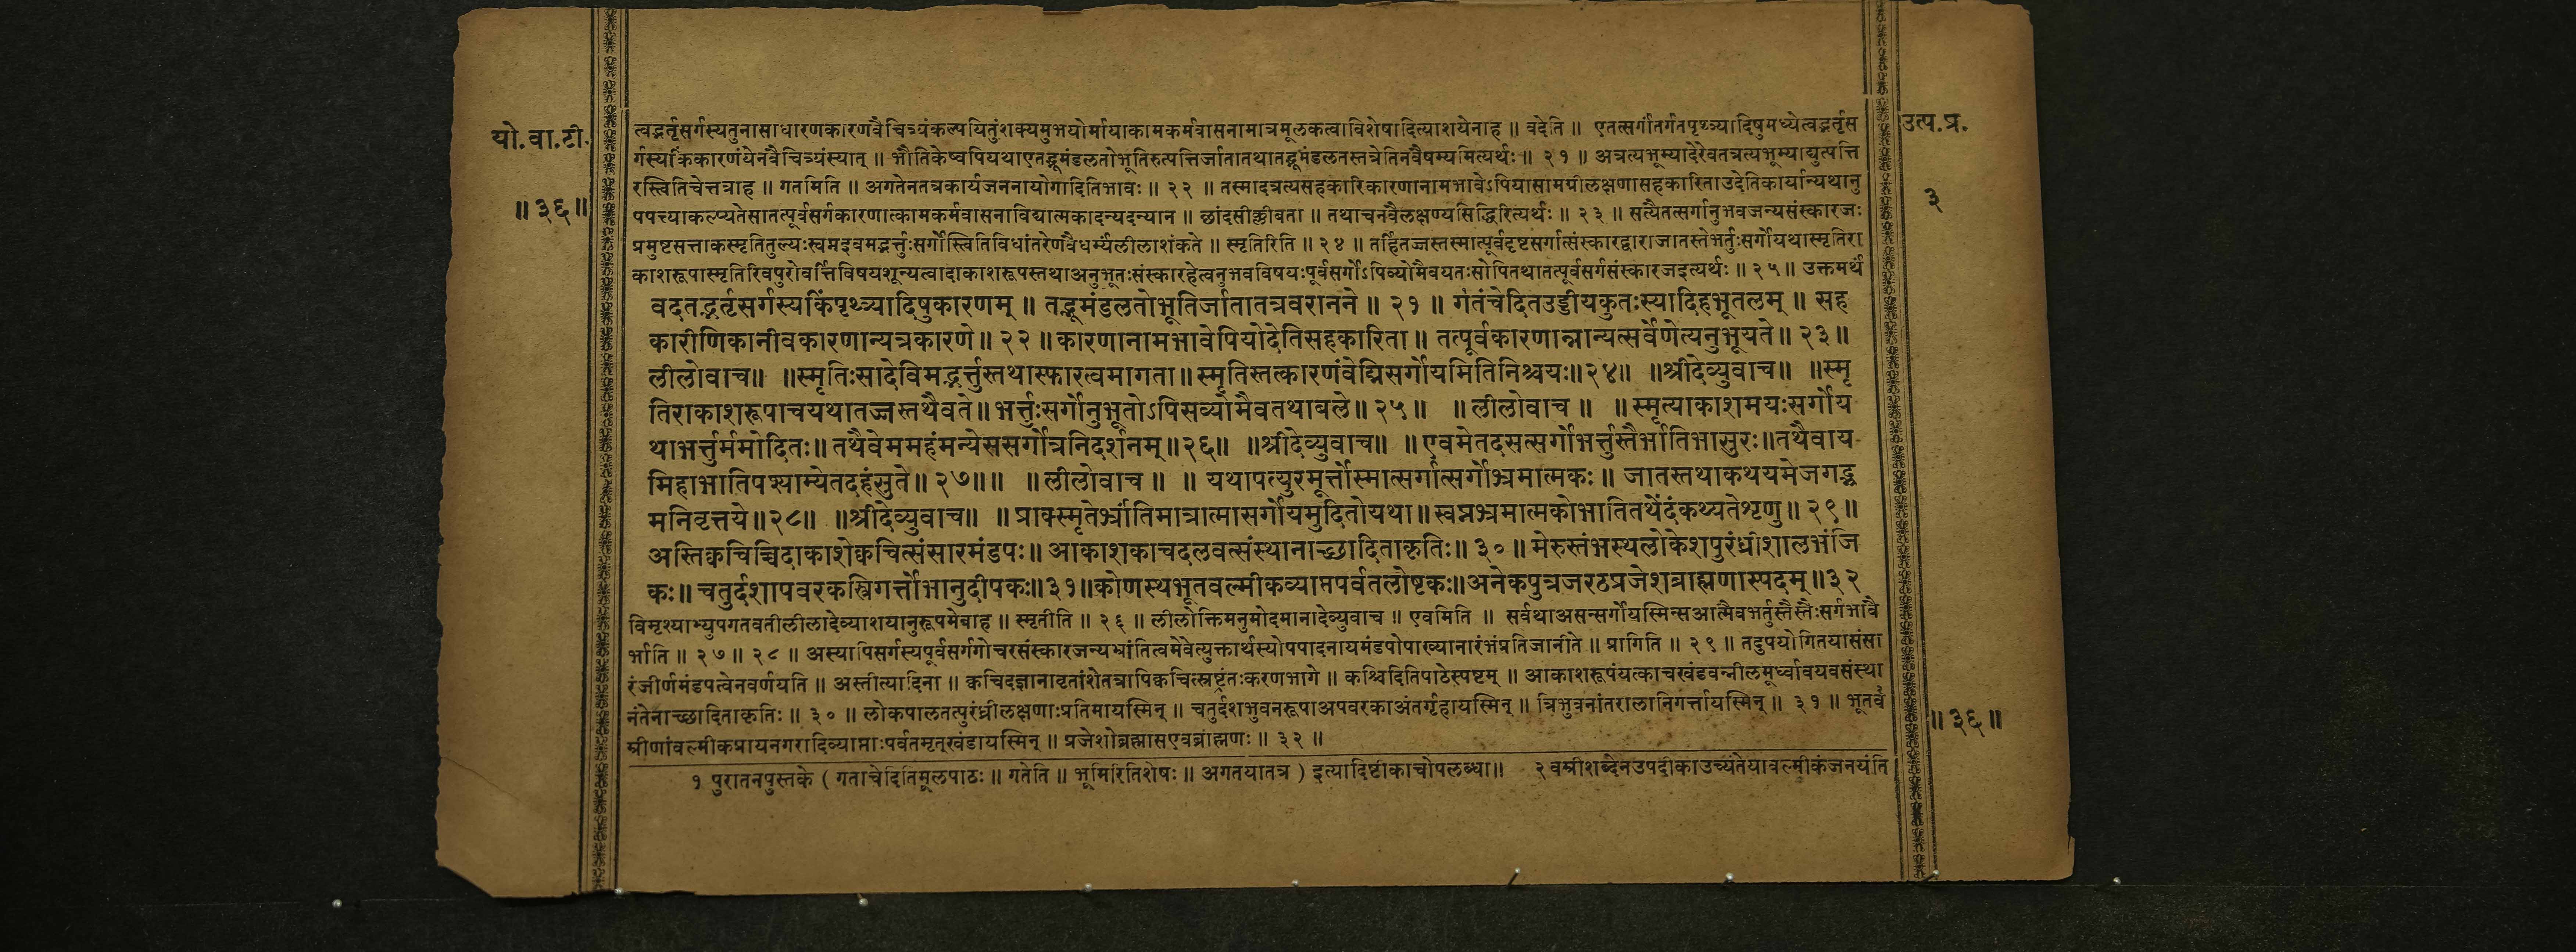 यो.वा.टी.
॥३६॥
उत्प.प्र.
३
त्वद्भर्तृसर्गस्यतुनासाधारणकारणवैचित्र्यंकल्पयितुंशक्यमुभयोर्मायाकामकर्मवासनामात्रमूलकत्वाविशेषादित्याशयेनाह ॥ वदेति ॥ एतत्सर्गांतर्गतपृथ्व्यादिषुमध्येत्वद्भर्तृस
र्गस्यकिंकारणंयेनवैचित्र्यंस्यात् ॥ भौतिकेष्वपियथाएतद्भूमंडलतोभूतिरुत्पत्तिर्जातातथातद्भूमंडलतस्तत्रेतिनवैषम्यमित्यर्थः ॥ २१ ॥ अत्रत्यभूम्यादेरेवतत्रत्यभूम्याद्युत्पत्ति
रस्त्वितिचेत्तत्राह ॥ गतमिति ॥ अगतेनतत्रकार्यजननायोगादितिभावः ॥ २२ ॥ तस्मादत्रत्यसहकारिकारणानामभावेऽपियासामग्रीलक्षणासहकारिताउदेतिकार्यान्यथानु
पपत्त्याकल्प्यतेसातत्पूर्वसर्गकारणात्कामकर्मवासनाविद्यात्मकादन्यदन्यान ॥ छांदसीक्लीबता ॥ तथाचनवैलक्षण्यसिद्धिरित्यर्थः ॥ २३ ॥ सत्यैतत्सर्गानुभवजन्यसंस्कारजः
प्रमुष्टसत्ताकस्मृतितुल्यःस्वमइवमद्भर्त्तुःसर्गोस्त्वितिविधांतरेणवैधर्म्यंलीलाशंकते ॥ स्मृतिरिति ॥ २४ ॥ तर्हितज्जस्तस्मात्पूर्वदृष्टसर्गात्संस्कारद्वाराजातस्तेभर्तुःसर्गोयथास्मृतिरा
काशरूपास्मृतिरिवपुरोवर्त्तिविषयशून्यत्वादाकाशरूपस्तथाअनुभूतःसंस्कारहेत्वनुभवविषयःपूर्वसर्गोऽपिव्योमैवयतःसोपितथातत्पूर्वसर्गसंस्कारजइत्यर्थः ॥ २५ ॥ उक्तमर्थं
वदतद्भर्तृसर्गस्यकिंपृथ्व्यादिषुकारणम् ॥ तद्भूमंडलतोभूतिर्जातातत्रवरानने ॥ २१ ॥ गतंचेदितउड्डीयकुतःस्यादिहभूतलम् ॥ सह
कारीणिकानीवकारणान्यत्रकारणे ॥ २२ ॥ कारणानामभावेपियोदेतिसहकारिता ॥ तत्पूर्वकारणान्नान्यत्सर्वेणेत्यनुभूयते ॥ २३ ॥
लीलोवाच॥ ॥स्मृतिःसादेविमद्भर्त्तुस्तथास्फारत्वमागता॥स्मृतिस्तत्कारणंवेद्मिसर्गोयमितिनिश्चयः॥२४॥ ॥श्रीदेव्युवाच॥ ॥स्मृ
तिराकाशरूपाचयथातज्जस्तथैवते॥भर्त्तुःसर्गोनुभूतोऽपिसव्योमैवतथाबले॥२५॥ ॥लीलोवाच॥ ॥स्मृत्याकाशमयःसर्गोय
थाभर्त्तुर्ममोदितः॥तथैवेममहंमन्येससर्गोत्रनिदर्शनम्॥२६॥ ॥श्रीदेव्युवाच॥ ॥एवमेतदसत्सर्गोभर्त्तुस्तैर्भातिभासुरः॥तथैवाय
मिहाभातिपश्याम्येतदहंसुते॥२७॥॥ ॥लीलोवाच॥ ॥ यथापत्युरमूर्त्तोस्मात्सर्गात्सर्गोभ्रमात्मकः॥ जातस्तथाकथयमेजगद्भ्र
मनिवृत्तये॥२८॥ ॥श्रीदेव्युवाच॥ ॥प्राक्स्मृतेर्भ्रांतिमात्रात्मासर्गोयमुदितोयथा॥स्वप्नभ्रमात्मकोभातितथेदंकथ्यतेशृणु॥२९॥
अस्तिक्वचिच्चिदाकाशेक्वचित्संसारमंडपः॥आकाशकाचदलवत्संस्थानाच्छादिताकृतिः॥३०॥मेरुस्तंभस्थलोकेशपुरंध्रीशालभंजि
कः॥चतुर्दशापवरकस्त्रिगर्त्तोभानुदीपकः॥३१॥कोणस्थभूतवल्मीकव्याप्तपर्वतलोष्टकः॥अनेकपुत्रजरठप्रजेशब्राह्मणास्पदम्॥३२
विमृश्याभ्युपगतवतीलीलादेव्याशयानुरूपमेवाह ॥ स्मृतीति ॥ २६ ॥ लीलोक्तिमनुमोदमानादेव्युवाच ॥ एवमिति ॥ सर्वथाअसन्सर्गोयस्मिन्सआत्मैवभर्तुस्तैस्तैःसर्गभावै
र्भाति ॥ २७ ॥ २८ ॥ अस्यापिसर्गस्यपूर्वसर्गगोचरसंस्कारजन्यभ्रांतित्वमेवेत्युक्तार्थस्योपपादनायमंडपोपाख्यानारंभंप्रतिजानीते ॥ प्रागिति ॥ २९ ॥ तदुपयोगितयासंसा
रंजीर्णमंडपत्वेनवर्णयति ॥ अस्तीत्यादिना ॥ क्वचिदज्ञानावृतांशेतत्रापिक्वचित्स्रष्टुंतःकरणभागे ॥ कश्चिदितिपाठेस्पष्टम् ॥ आकाशरूपंयत्काचखंडवन्नीलमूर्ध्वावयवसंस्था
नंतेनाच्छादिताकृतिः ॥ ३० ॥ लोकपालतत्पुरंध्रीलक्षणाःप्रतिमायस्मिन् ॥ चतुर्दशभुवनरूपाअपवरकाअंतर्गृहायस्मिन् ॥ त्रिभुवनांतरालानिगर्त्तायस्मिन् ॥ ३१ ॥ भूतवं
म्रीणांवल्मीकप्रायनगरादिव्याप्ताःपर्वतमृत्खंडायस्मिन् ॥ प्रजेशोब्रह्मासएवब्राह्मणः ॥ ३२ ॥
॥३६॥
१ पुरातनपुस्तके ( गताचेदितिमूलपाठः ॥ गतेति ॥ भूमिरितिशेषः ॥ अगतयातत्र ) इत्यादिष्टीकाचोपलब्धा॥ २ वम्रीशब्देनउपदीकाउच्यंतेयावल्मीकंजनयंति